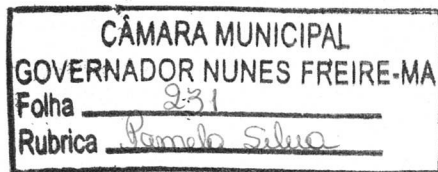 CÂMARA MUNICIPAL
GOVERNADOR NUNES FREIRE-MA
Folha 231
Rubrica Pamela Silva